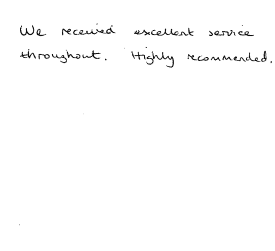 We received excellent service
throughout. Highly recommended.